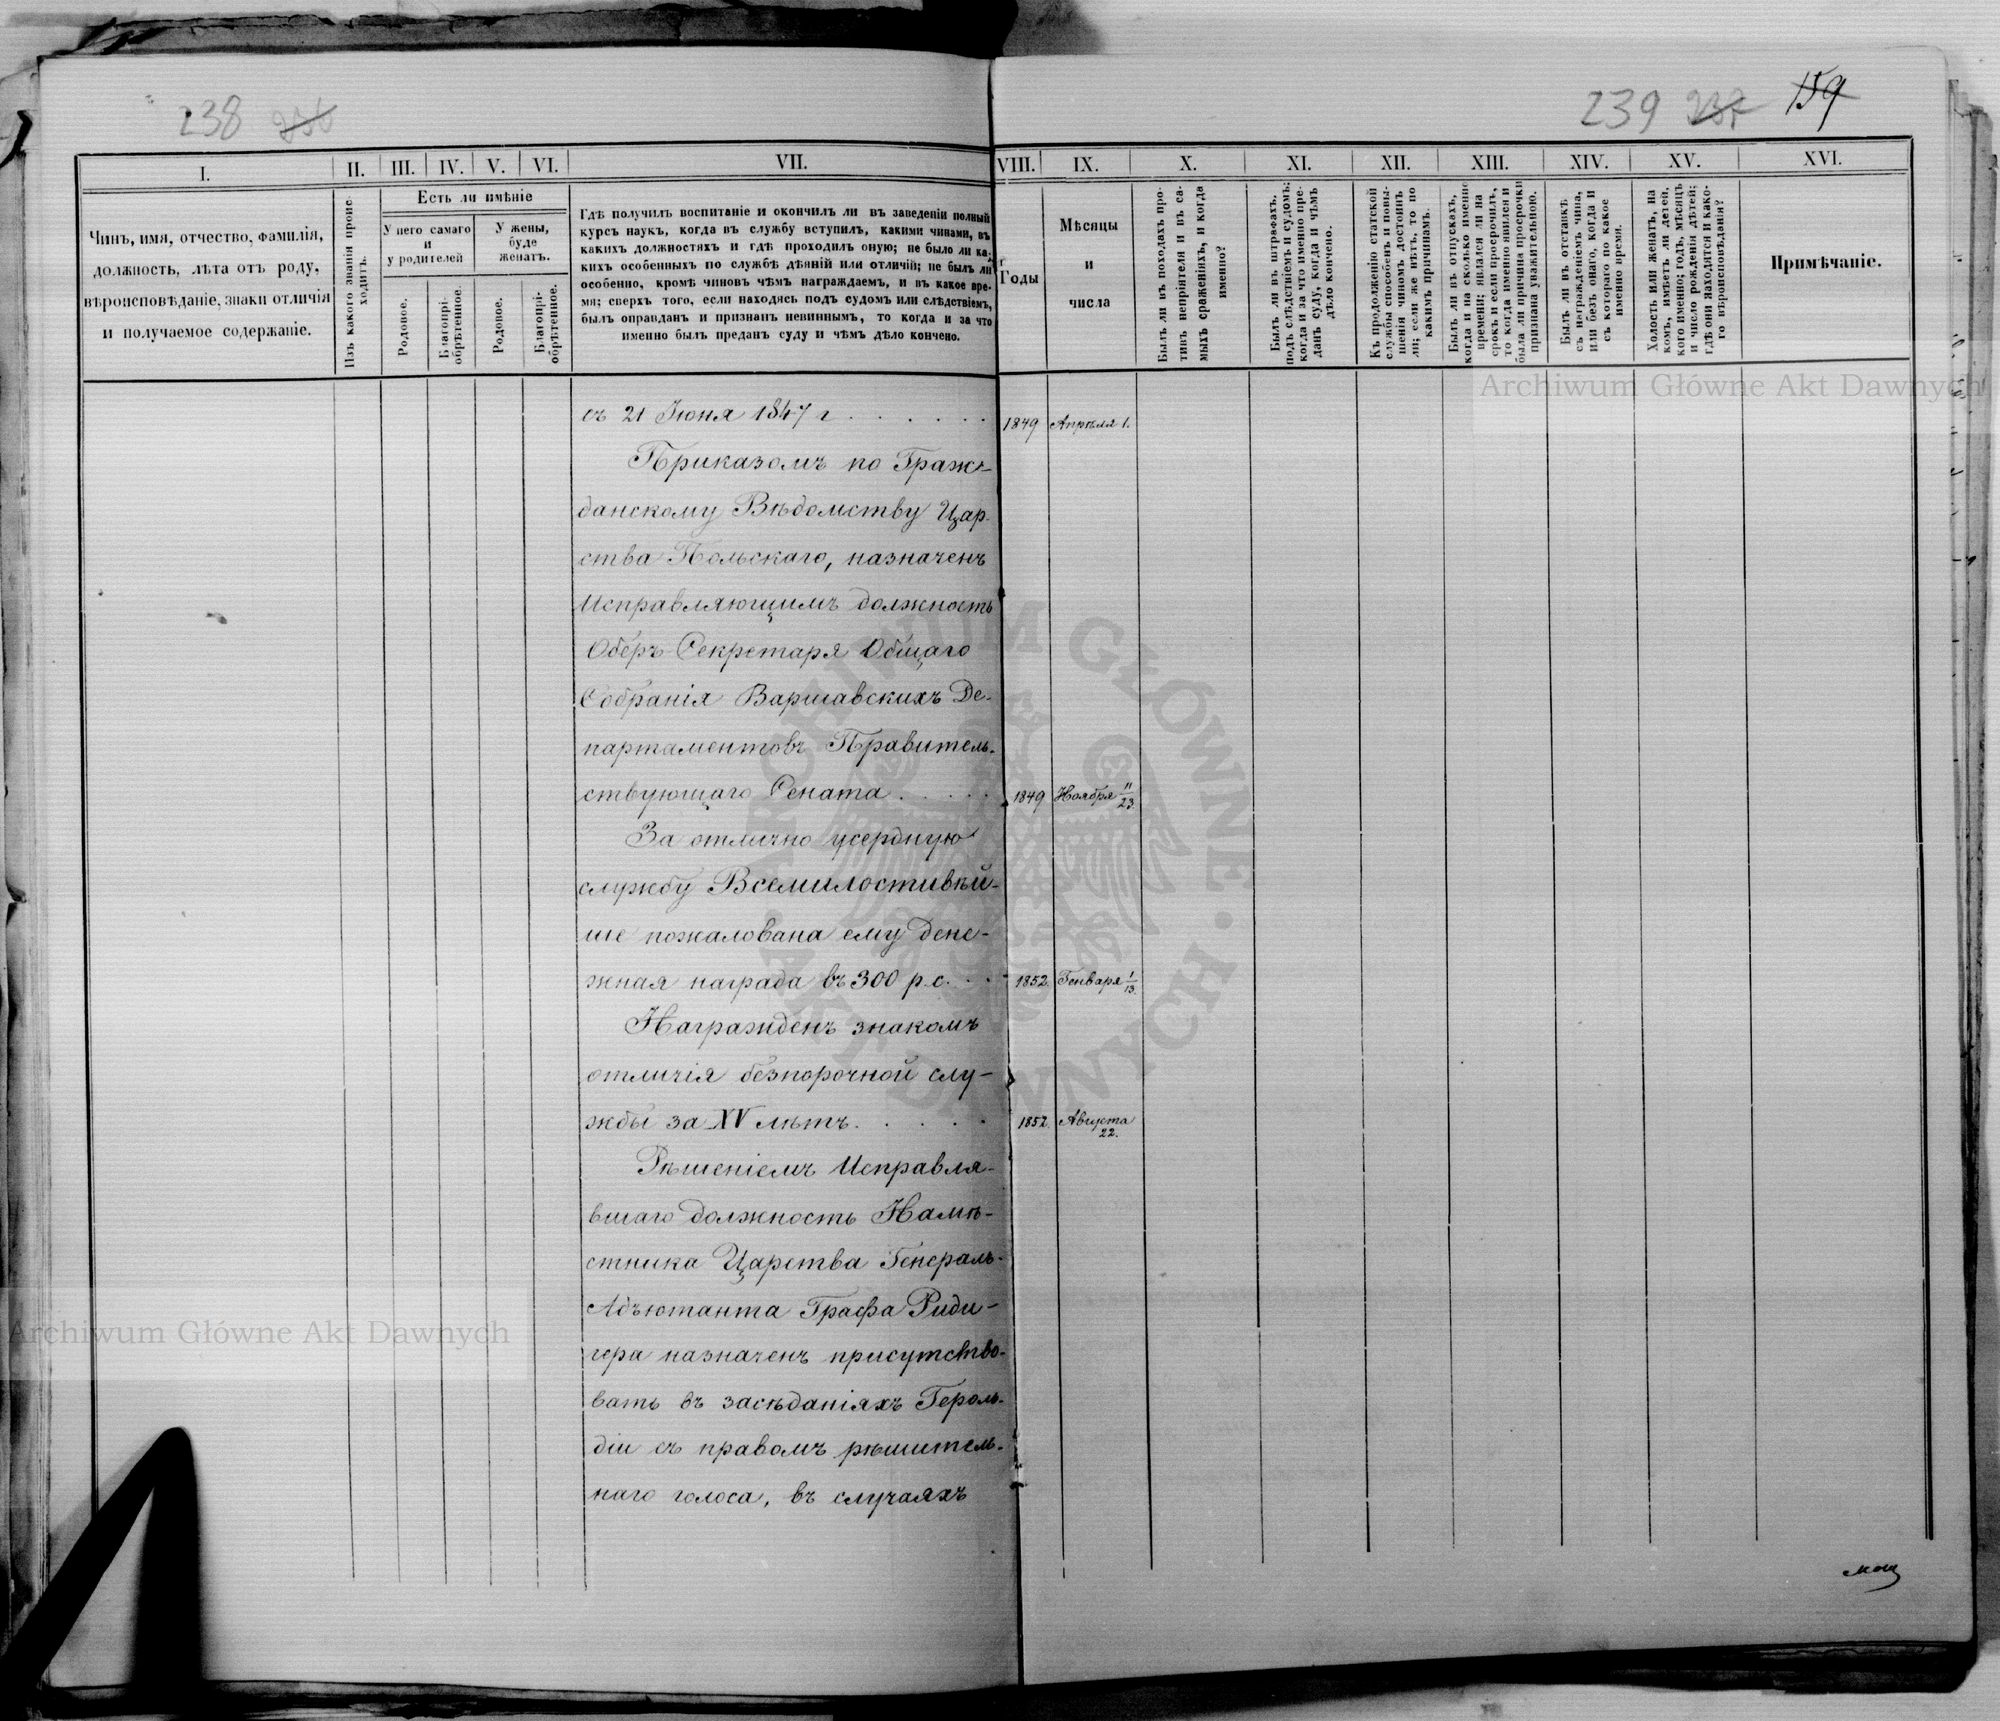 238 236
239 237 159
I.
II.
III.
IV.
V.
VI.
VII.
VIII.
IX.
X.
XI.
XII.
XIII.
XIV.
XV.
XVI.
Чинъ, имя, отчество, фамилія,
должность, лѣта отъ роду,
вѣроисповѣданіе, знаки отличія
и получаемое содержаніе.
Изъ какого званія проис-
ходитъ.
Есть ли имѣніе
У него самаго
и
у родителей
У жены,
буде
женатъ.
Родовое.
Благопрі-
обрѣтенное.
Родовое.
Благопрі-
обрѣтенное.
Гдѣ получилъ воспитаніе и окончилъ ли въ заведеніи полный
курсъ наукъ, когда въ службу вступилъ, какими чинами, въ
какихъ должностяхъ и гдѣ проходилъ оную; не было ли ка-
кихъ особенныхъ по службѣ дѣяній или отличій; не былъ ли
особенно, кромѣ чиновъ чѣмъ награждаемъ, и въ какое вре-
мя; сверхъ того, если находясь подъ судомъ или слѣдствіемъ,
былъ оправданъ и признанъ невиннымъ, то когда и за что
именно былъ преданъ суду и чѣмъ дѣло кончено.
Годы
Мѣсяцы
и
числа
Былъ ли въ походахъ про-
тивъ непріятеля и въ са-
мыхъ сраженіяхъ, и когда
именно?
Былъ ли въ штрафахъ,
подъ слѣдствіемъ и судомъ;
когда и за что именно пре-
данъ суду, когда и чѣмъ
дѣло кончено.
Къ продолженію статской
службы способенъ и повы-
шенія чиномъ достоинъ
ли; если же нѣтъ, то по
какимъ причинамъ.
Былъ ли въ отпускахъ,
когда и на сколько именно
времени; являлся ли на
срокъ и если просрочилъ,
то когда именно явился и
была ли причина просрочки
признана уважительною.
Былъ ли въ отставкѣ
съ награжденіемъ чина,
или безъ онаго, когда и
съ котораго по какое
именно время.
Холостъ или женатъ, на
комъ, имѣетъ ли дѣтей,
кого именно; годъ, мѣсяцъ
и число рожденія дѣтей;
гдѣ они находятся и како-
го вѣроисповѣданія?
Примѣчаніе.
съ 21 Іюня 1847 г . . . . . . 1849 Апрѣля 1.
Приказомъ по Граж-
данскому Вѣдомству Цар-
ства Польскаго, назначенъ
Исправляющимъ должность
Оберъ-Секретаря Общаго
Собранія Варшавскихъ Де-
партаментовъ Правитель-
ствующаго Сената . . . . . 1849 Ноября 11/23.
За отлично усердную
службу Всемилостивѣй-
ше пожалована ему дене-
жная награда въ 300 р. с. . . 1852. Генваря 1/13.
Награжденъ знакомъ
отличія безпорочной слу-
жбы за XV лѣтъ. . . . . 1852. Августа
22.
Рѣшеніемъ Исправля-
вшаго должность Намѣ-
стника Царства Генералъ-
Адъютанта Графа Риди-
гера назначенъ присутство-
вать въ засѣданіяхъ Героль-
діи съ правомъ рѣшитель-
наго голоса, въ случаяхъ
Archiwum Główne Akt Dawnych
ARCHIWUM GŁÓWNE · AKT DAWNYCH ·
Archiwum Główne Akt Dawnych